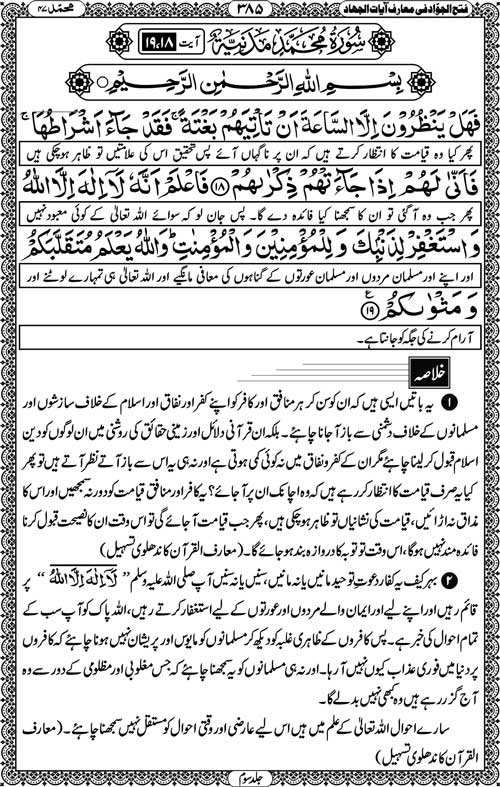 محمّد ۴۷
۳۸۵
فتح الجوّاد فی معارف آیات الجهاد
سُورَةُ مُحَمَّد مَدَنِيَّة آیت ۱۸، ۱۹
بِسْمِ اللهِ الرَّحْمٰنِ الرَّحِيْمِ
فَهَلْ يَنْظُرُوْنَ اِلَّا السَّاعَةَ اَنْ تَاْتِيَهُمْ بَغْتَةً ۚ فَقَدْ جَآءَ اَشْرَاطُهَا ۚ
پھر کیا وہ قیامت کا انتظار کرتے ہیں کہ ان پر ناگہاں آئے پس تحقیق اس کی علامتیں تو ظاہر ہوچکی ہیں
فَاَنّٰى لَهُمْ اِذَا جَآءَتْهُمْ ذِكْرٰىهُمْ ﴿۱۸﴾ فَاعْلَمْ اَنَّهٗ لَآ اِلٰهَ اِلَّا اللّٰهُ
پھر جب وہ آگئی تو ان کا سمجھنا کیا فائدہ دے گا۔ پس جان لو کہ سوائے اللہ تعالیٰ کے کوئی معبود نہیں
وَاسْتَغْفِرْ لِذَنْۢبِكَ وَلِلْمُؤْمِنِيْنَ وَالْمُؤْمِنٰتِ ؕ وَاللّٰهُ يَعْلَمُ مُتَقَلَّبَكُمْ
اور اپنے اور مسلمان مردوں اور مسلمان عورتوں کے گناہوں کی معافی مانگیے اور اللہ تعالیٰ ہی تمہارے لوٹنے اور
وَمَثْوٰىكُمْ ﴿۱۹﴾
آرام کرنے کی جگہ کو جانتا ہے۔
خلاصہ
۱ یہ باتیں ایسی ہیں کہ ان کو سن کر ہر منافق اور کافر کو اپنے کفر اور نفاق اور اسلام کے خلاف سازشوں اور
مسلمانوں کے خلاف دشمنی سے باز آجانا چاہئے۔ بلکہ ان قرآنی دلائل اور زمینی حقائق کی روشنی میں ان لوگوں کو دین
اسلام قبول کرلینا چاہئے مگر ان کے کفر و نفاق میں نہ کوئی کمی ہوتی ہے اور نہ ہی یہ اس سے باز آتے نظر آتے ہیں تو پھر
کیا یہ صرف قیامت کا انتظار کر رہے ہیں کہ وہ اچانک ان پر آجائے؟ یہ کافر اور منافق قیامت کو دور نہ سمجھیں اور اس کا
مذاق نہ اڑائیں، قیامت کی نشانیاں تو ظاہر ہوچکی ہیں، پھر جب قیامت آجائے گی تو اس وقت ان کا نصیحت قبول کرنا
فائدہ مند نہیں ہوگا، اس وقت تو توبہ کا دروازہ بند ہوجائے گا۔ (معارف القرآن کاندھلوی تسہیل)
۲ بہر کیف یہ کفار دعوتِ توحید مانیں یا نہ مانیں، سنیں یا نہ سنیں آپ صلی اللہ علیہ وسلم ”لَآ اِلٰهَ اِلَّا اللّٰهُ“ پر
قائم رہیں اور اپنے لیے اور ایمان والے مردوں اور عورتوں کے لیے استغفار کرتے رہیں، اللہ پاک کو آپ سب کے
تمام احوال کی خبر ہے۔ پس کافروں کے ظاہری غلبہ کو دیکھ کر مسلمانوں کو مایوس اور پریشان نہیں ہونا چاہئے کہ کافروں
پر دنیا میں فوری عذاب کیوں نہیں آرہا۔ اور نہ ہی مسلمانوں کو یہ سمجھنا چاہئے کہ جس مغلوبی اور مظلومی کے دور سے وہ
آج گزر رہے ہیں وہ کبھی نہیں بدلے گا۔
سارے احوال اللہ تعالیٰ کے علم میں ہیں اس لیے عارضی اور وقتی احوال کو مستقل نہیں سمجھنا چاہئے۔ (معارف
القرآن کاندھلوی تسہیل)
جلد سوم